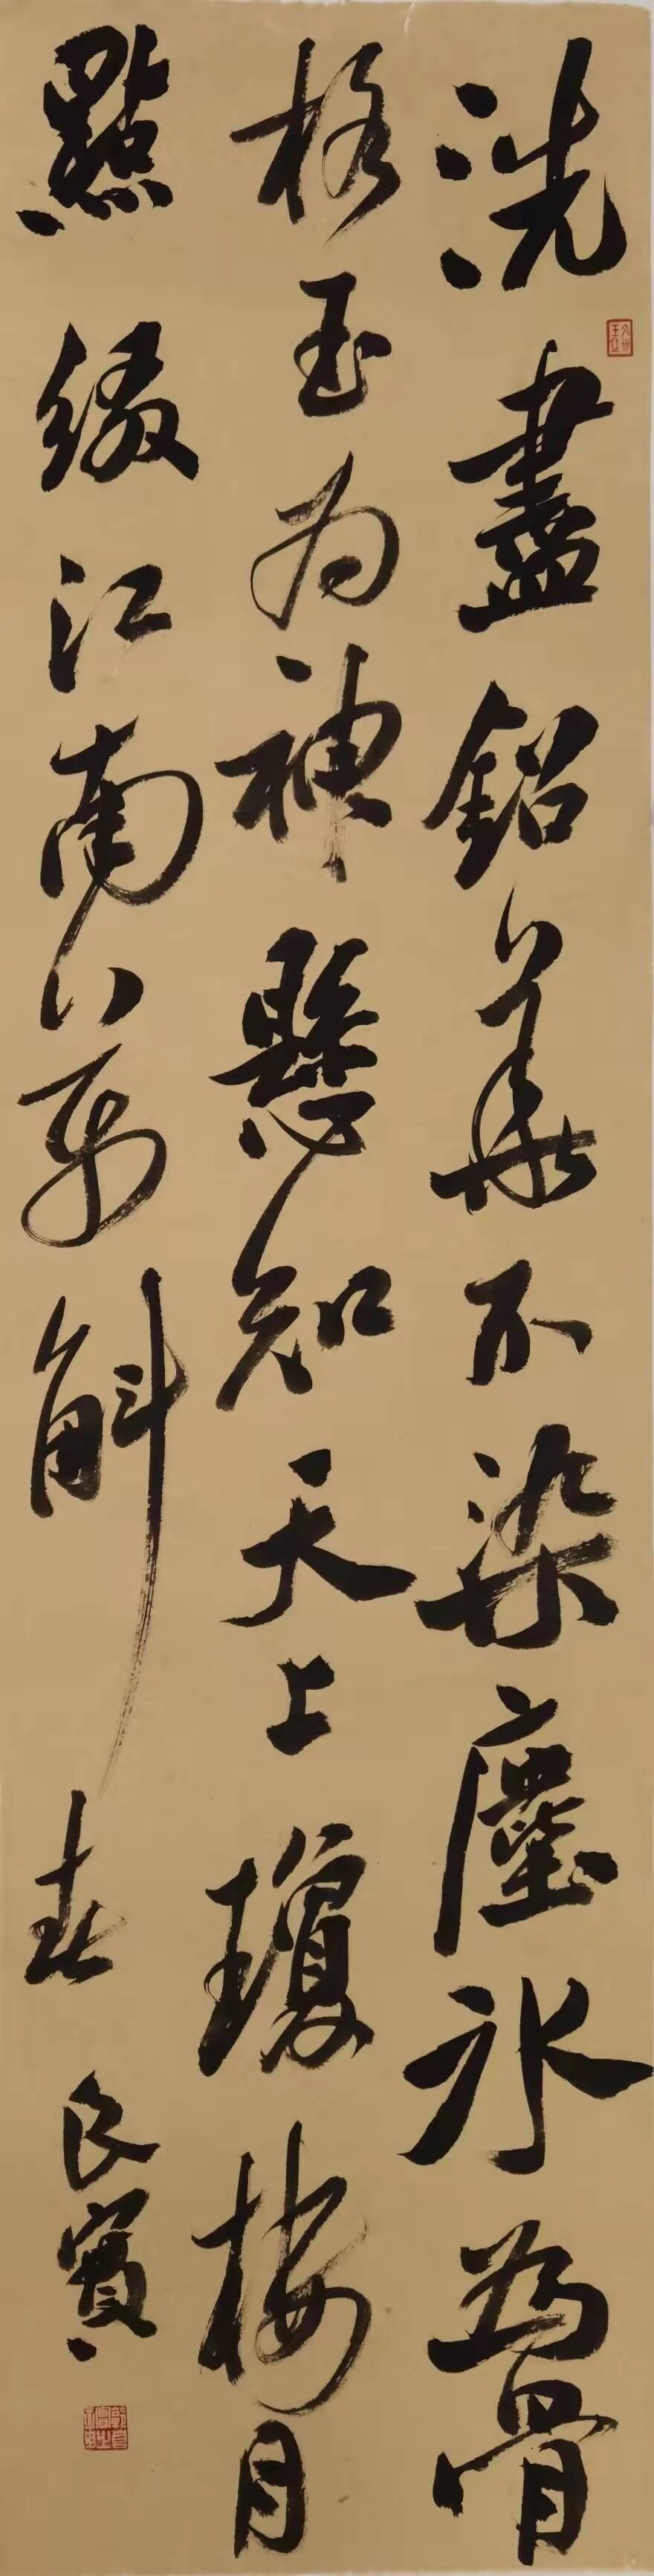 洗盡鉛華不染塵冰為骨
格玉為神懸知天上瓊樓月
點綴江南萬斛春 良實